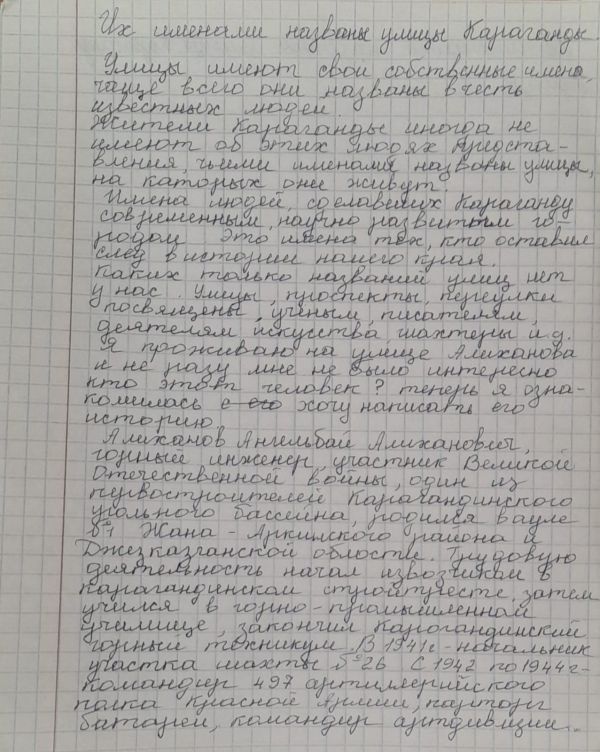 Их именами названы улицы Караганды
Улицы имеют свои собственные имена,
чаще всего они названы в честь
известных людей.
Жители Караганды иногда не
имеют об этих людях предста-
вления, чьими именами названы улицы,
на каторых они живут.
Имена людей, сделавших Караганду
современным, научно развитым го-
родом Это имена тех, кто оставил
след в истории нашего края.
Каких только названий улиц нет
у нас. Улицы, проспекты, переулки
посвящены, учёным, писателям,
деятелям искусства, шахтеры и.д.
Я проживаю на улице Алиханова
и не разу мне не было интересно
кто этот человек? теперь я озна-
комилась с его хочу написать его
историю.
Алиханов Ангельбай Алиханович,
горный инженер, участник Великой
Отечественной войны, один из
первостроителей Карагандинского
угольного бассейна, родился в ауле
Жана-Аркинского района
Джезказганской области. Трудовую
деятельность начал извозчикам в
карагандинскам стройтресте, затем
учился в горно-промышленнам
училище, закончил Карагандинский
горный техникум. В 1941г-начальник
участка шахты №26 С 1942 по 1944г-
командир 497 артиллерийского
полка Красной Армии, парторг
батареи, командир артдивизии.